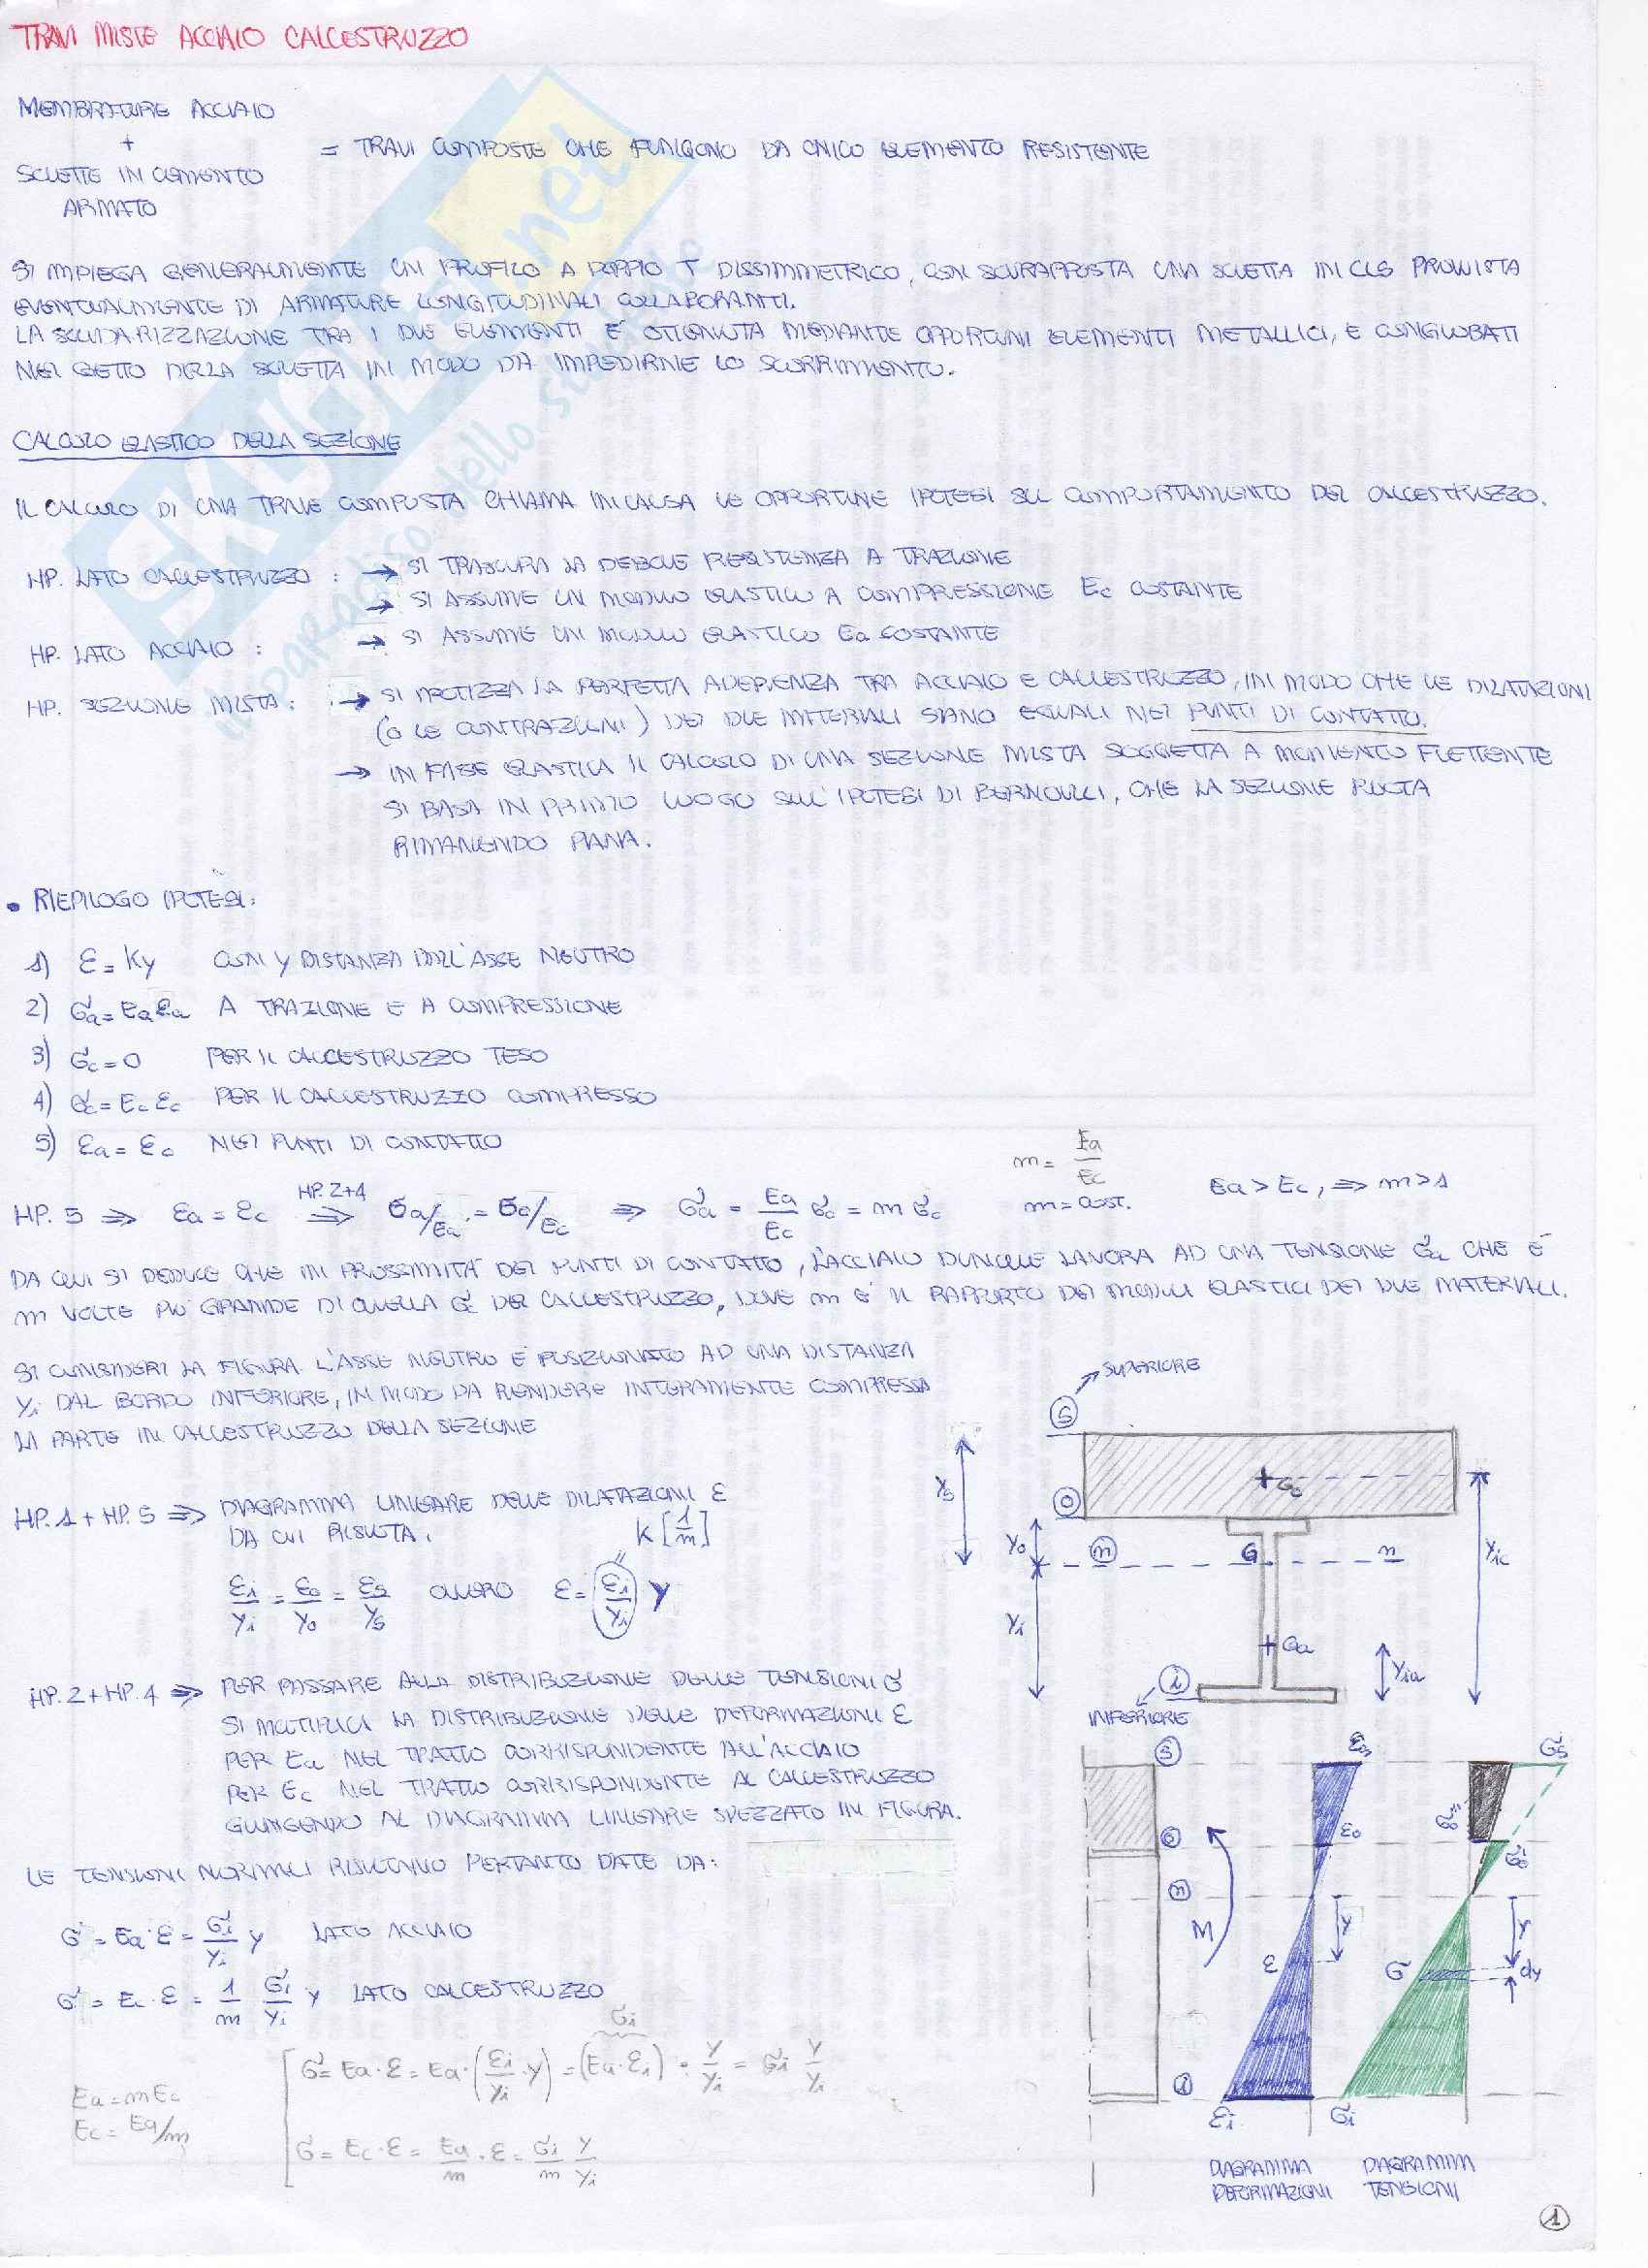 TRAVI MISTE ACCIAIO CALCESTRUZZO
MEMBRATURE ACCIAIO
+
SOLETTE IN CEMENTO
ARMATO
= TRAVI COMPOSTE CHE FUNGONO DA UNICO ELEMENTO RESISTENTE
SI IMPIEGA GENERALMENTE UN PROFILO A DOPPIO T DISSIMMETRICO, CON SOVRAPPOSTA UNA SOLETTA IN CLS PROVVISTA
EVENTUALMENTE DI ARMATURE LONGITUDINALI COLLABORANTI.
LA SOLIDARIZZAZIONE TRA I DUE ELEMENTI È OTTENUTA MEDIANTE OPPORTUNI ELEMENTI METALLICI, E CONGLOBATI
NEL GETTO DELLA SOLETTA IN MODO DA IMPEDIRNE LO SCORRIMENTO.
CALCOLO ELASTICO DELLA SEZIONE
IL CALCOLO DI UNA TRAVE COMPOSTA CHIAMA IN CAUSA LE OPPORTUNE IPOTESI SUL COMPORTAMENTO DEL CALCESTRUZZO.
HP. LATO CALCESTRUZZO : → SI TRASCURA LA DEBOLE RESISTENZA A TRAZIONE
→ SI ASSUME UN MODULO ELASTICO A COMPRESSIONE Ec COSTANTE
HP. LATO ACCIAIO : → SI ASSUME UN MODULO ELASTICO Ea COSTANTE
HP. SEZIONE MISTA : → SI IPOTIZZA LA PERFETTA ADERENZA TRA ACCIAIO E CALCESTRUZZO, IN MODO CHE LE DILATAZIONI
(O LE CONTRAZIONI) DEI DUE MATERIALI SIANO EGUALI NEI PUNTI DI CONTATTO.
→ IN FASE ELASTICA IL CALCOLO DI UNA SEZIONE MISTA SOGGETTA A MOMENTO FLETTENTE
SI BASA IN PRIMO LUOGO SULL'IPOTESI DI BERNOULLI, CHE LA SEZIONE RUOTA
RIMANENDO PIANA.
• RIEPILOGO IPOTESI:
1) ε = ky CON y DISTANZA DALL'ASSE NEUTRO
2) σa = Ea εa A TRAZIONE E A COMPRESSIONE
3) σc = 0 PER IL CALCESTRUZZO TESO
4) σc = Ec εc PER IL CALCESTRUZZO COMPRESSO
5) εa = εc NEI PUNTI DI CONTATTO
m = Ea/Ec
m = cost.
Ea > Ec, ⇒ m > 1
HP. 5 ⇒ εa = εc ⇒ (HP. 2+4) σa/Ea = σc/Ec ⇒ σa = Ea/Ec σc = m σc
DA QUI SI DEDUCE CHE IN PROSSIMITÀ DEI PUNTI DI CONTATTO, L'ACCIAIO DUNQUE LAVORA AD UNA TENSIONE σa CHE È
m VOLTE PIÙ GRANDE DI QUELLA σc DEL CALCESTRUZZO, DOVE m È IL RAPPORTO DEI MODULI ELASTICI DEI DUE MATERIALI.
SI CONSIDERI LA FIGURA. L'ASSE NEUTRO È POSIZIONATO AD UNA DISTANZA
yi DAL BORDO INFERIORE, IN MODO DA RENDERE INTERAMENTE COMPRESSA
LA PARTE IN CALCESTRUZZO DELLA SEZIONE
HP. 1 + HP. 5 ⇒ DIAGRAMMA LINEARE DELLE DILATAZIONI ε
DA CUI RISULTA:
k [1/m]
εi/yi = εo/yo = εs/ys OVVERO ε = (εi/yi) y
HP. 2 + HP. 4 ⇒ PER PASSARE ALLA DISTRIBUZIONE DELLE TENSIONI σ
SI MOLTIPLICI LA DISTRIBUZIONE DELLE DEFORMAZIONI ε
PER Ea NEL TRATTO CORRISPONDENTE ALL'ACCIAIO
PER Ec NEL TRATTO CORRISPONDENTE AL CALCESTRUZZO
GIUNGENDO AL DIAGRAMMA LINEARE SPEZZATO IN FIGURA.
LE TENSIONI NORMALI RISULTANO PERTANTO DATE DA:
σ = Ea · ε = σi/yi y LATO ACCIAIO
σ = Ec · ε = 1/m σi/yi y LATO CALCESTRUZZO
Ea = m Ec
Ec = Ea/m
σ = Ea · ε = Ea · (εi/yi · y) = (Ea · εi) · y/yi = σi y/yi
σi
σ = Ec · ε = Ea/m · ε = σi/m y/yi
SUPERIORE
S
O
n
Gc
G
n
Ga
i
INFERIORE
ys
yo
yi
yic
yia
S
o
n
i
M
εo
ε
εi
y
σs
σ
σi
y
dy
DIAGRAMMA
DEFORMAZIONI
DIAGRAMMA
TENSIONI
1
SKUOLA.net
il paradiso dello studente